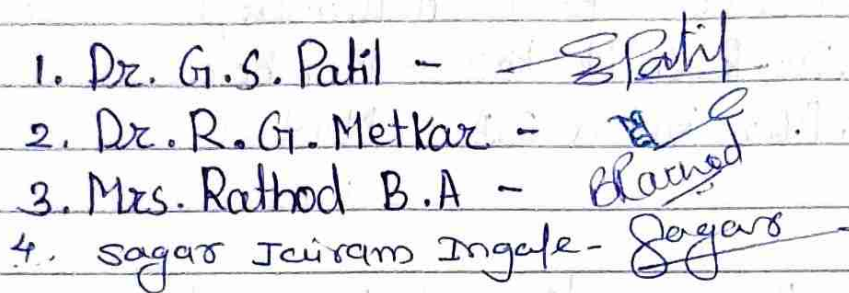 1. Dr. G.S. Patil - GPatil
2. Dr. R. G. Metkar -
3. Mrs. Rathod B.A - BRathod
4. sagar Jairam Ingale - Sagar